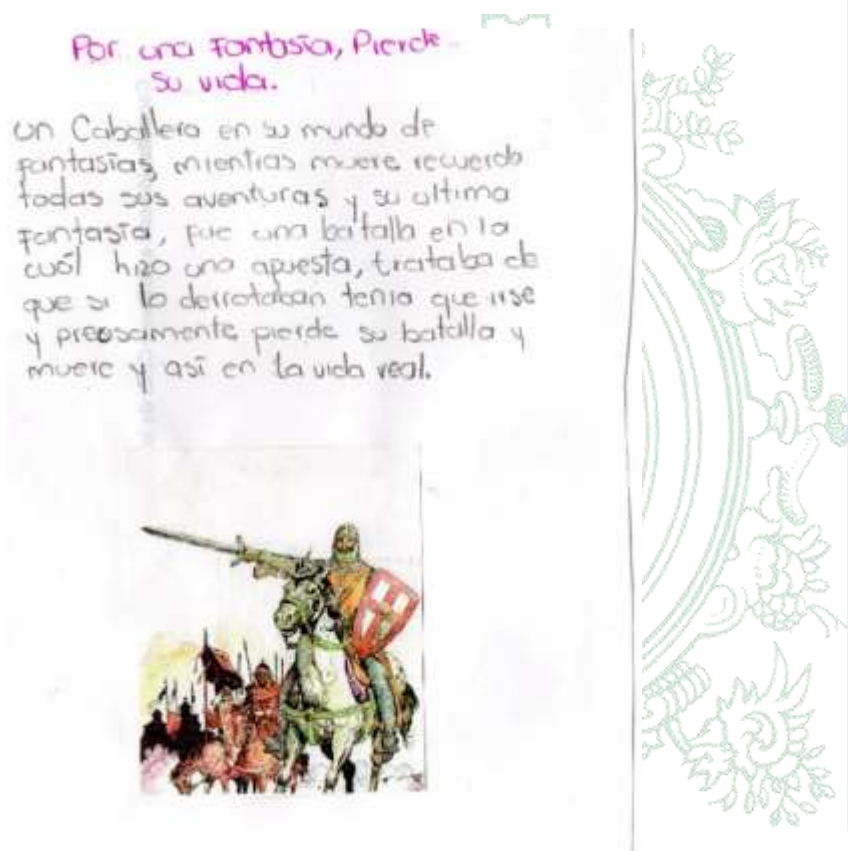 Por una Fantasia, Pierde
su vida.
un Caballero en su mundo de
fantasías, mientras muere recuerda
todas sus aventuras y su ultima
Fantasía, fue una batalla en la
cuál hizo una apuesta, trataba de
que si lo derrotaban tenia que irse
y precisamente pierde su batalla y
muere y así en la vida real.